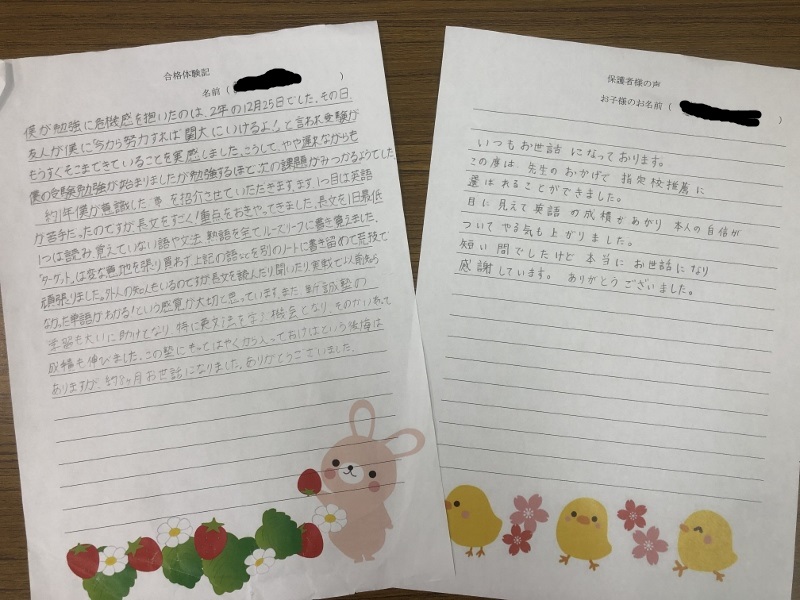 合格体験記
名前（ ）
僕が勉強に危機感を抱いたのは、2年の12月25日でした。その日、
友人が僕に「今から努力すれば関大にいけるよ!」と言われ受験が
もうすぐそこまできていることを実感しました。こうして、やや遅れながらも
僕の受験勉強が始まりましたが勉強するほど、次の課題がみつかるようでした。
約1年僕が意識した事を紹介させていただきます。まず1つ目は英語
が苦手だったのですが、長文をすごく重点をおきやってきました。長文を1日最低
1つは読み、覚えていない語や文法、熟語を全てルーズリーフに書き覚えました。
ターゲットは変な意地を張り買わず上記の語などを別のノートに書き留めて荒技で
頑張りました。外人の知人もいるのですが長文を読んだり聞いたり実戦で以前知ら
なかった単語がわかる!という感覚が大切と思っています。また
授業も大いに助けとなり、特に英文法を学ぶ機会となり、そのかいあって
成績も伸びました。この塾にもっとはやくから入っておけばという後悔は
ありますが、約8ヶ月お世話になりました。ありがとうございました。
保護者様の声
お子様のお名前（ ）
いつもお世話になっております。
この度は、先生のおかげで 指定校推薦に
選ばれることができました。
目に見えて英語の成績があがり 本人の自信が
ついてやる気も上がりました。
短い間でしたけど 本当に お世話になり
感謝しています。 ありがとうございました。